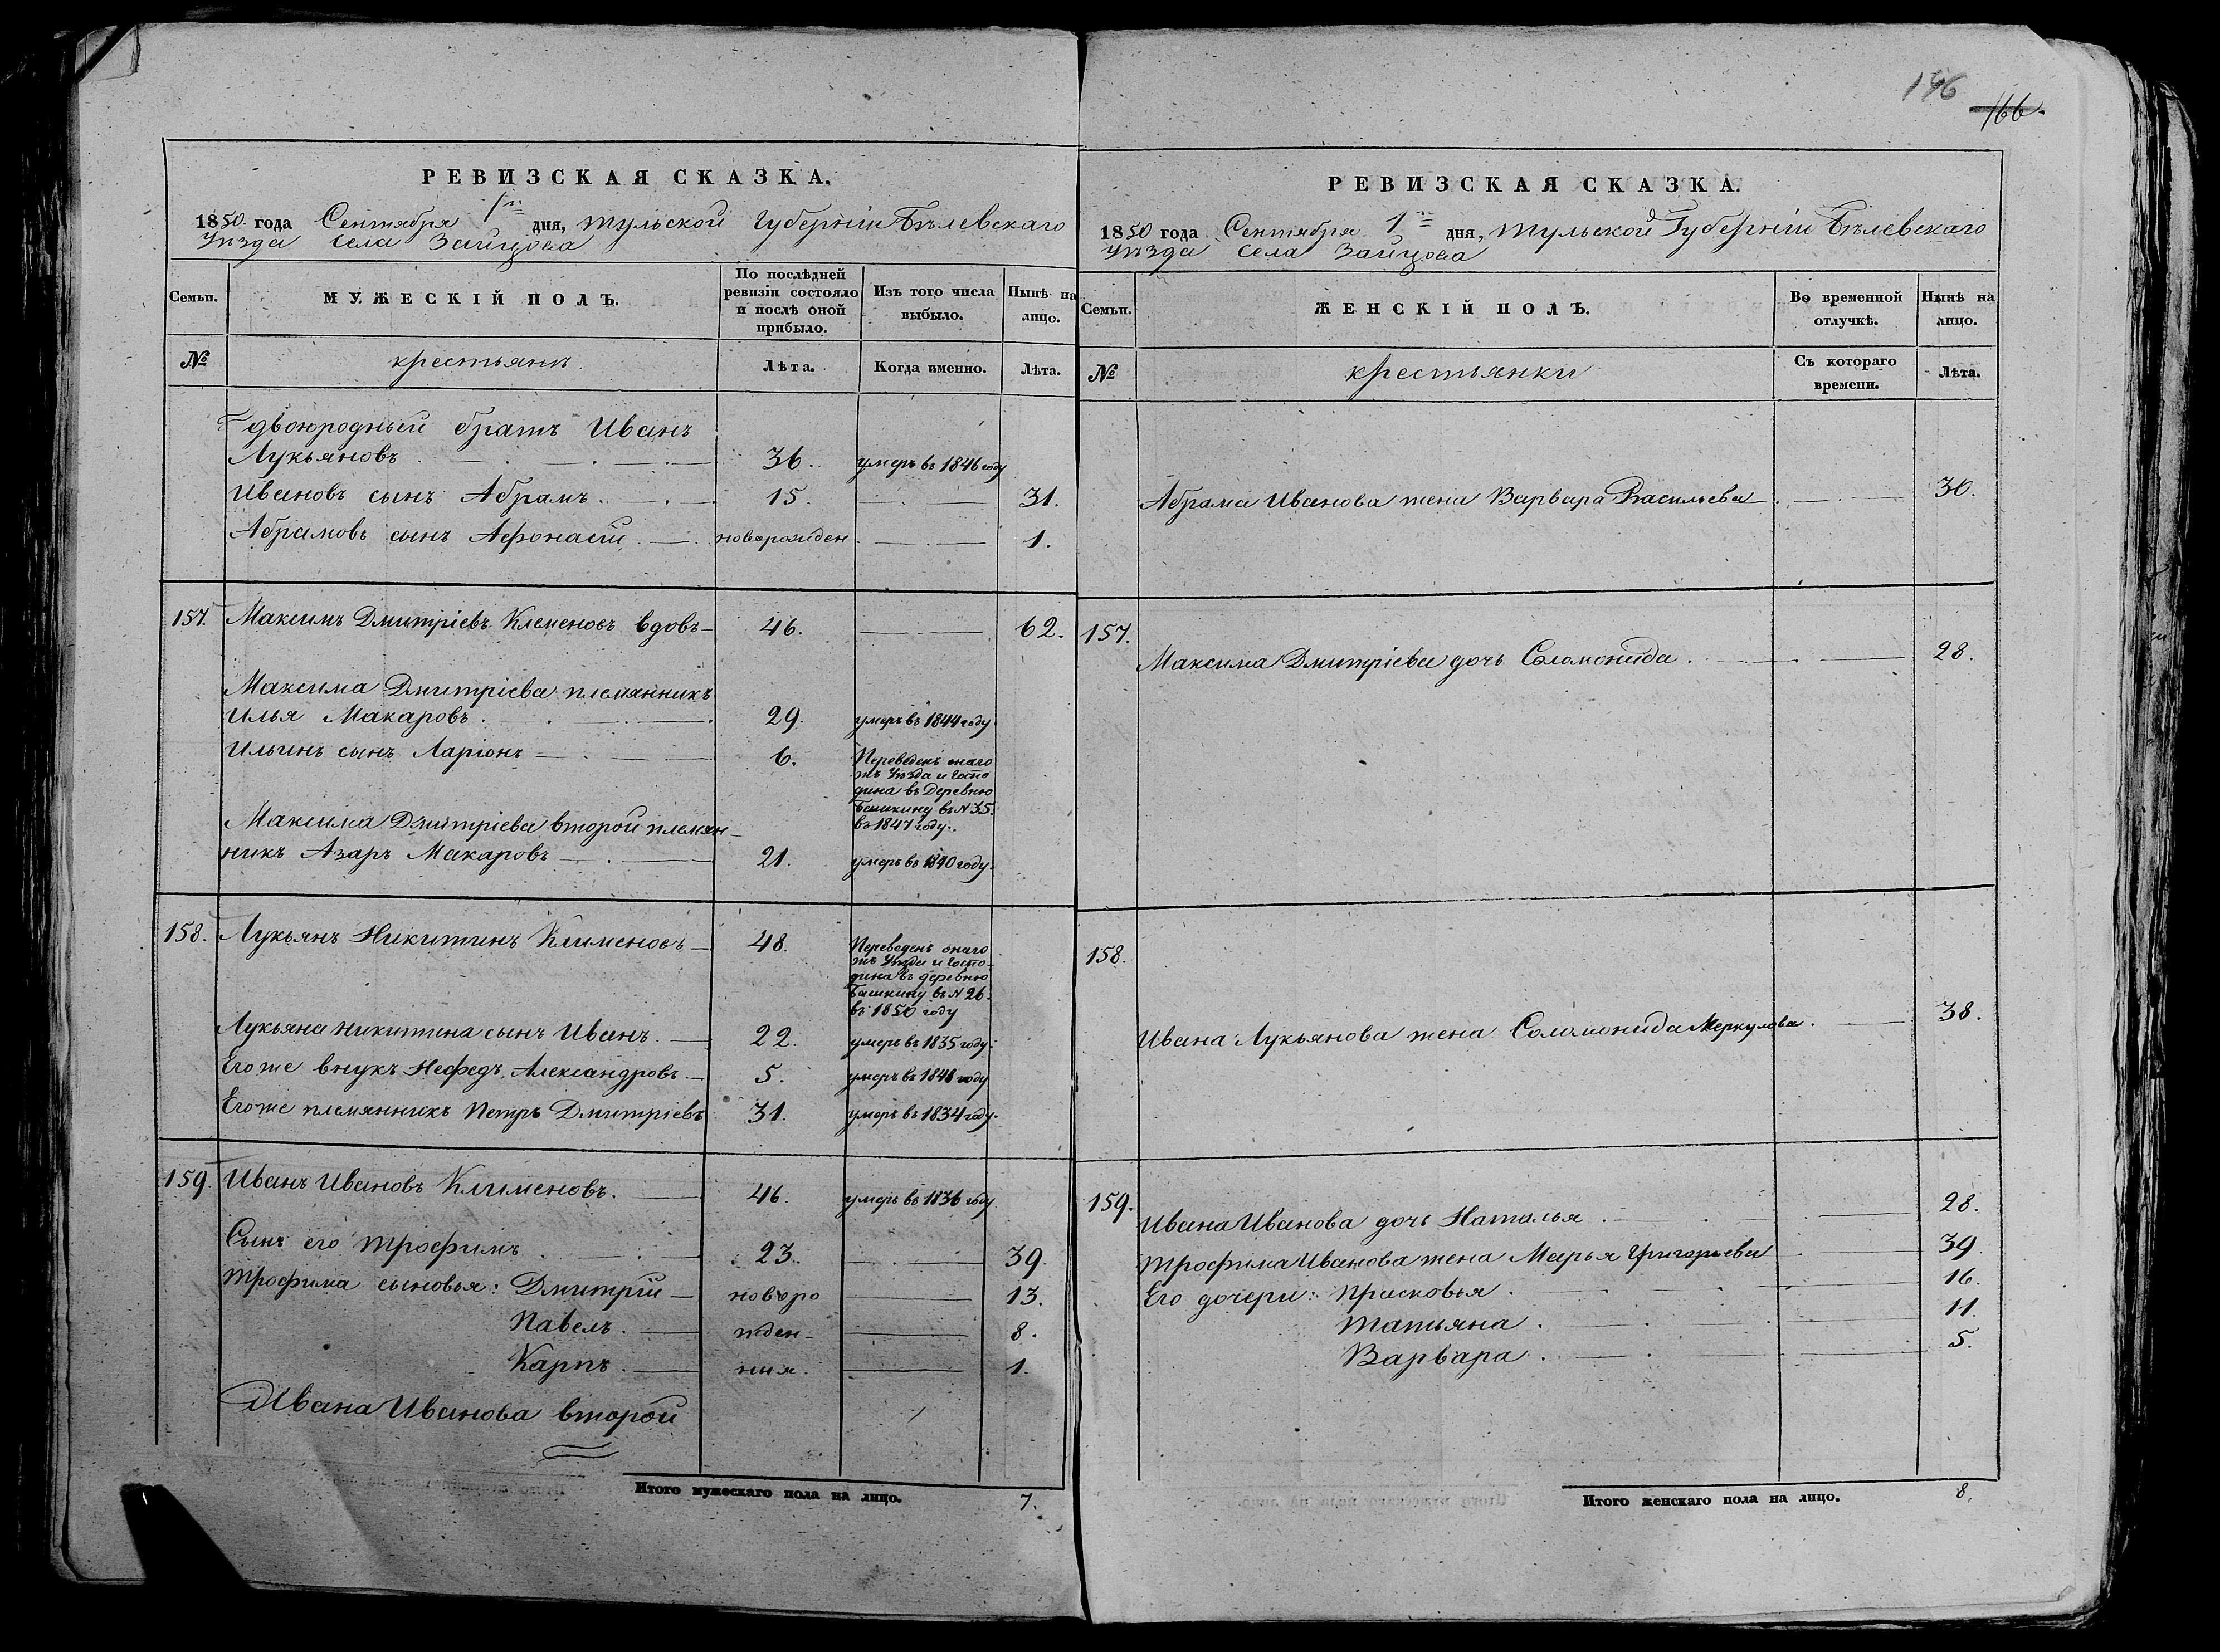 146
166.
РЕВИЗСКАЯ СКАЗКА.
1850 года Сентября 1го дня, Тульской Губерніи Бѣлевскаго
Уѣзда села Зайцова
Семьи.
МУЖЕСКІЙ ПОЛЪ.
По послѣдней
ревизіи состояло
и послѣ оной
прибыло.
Изъ того числа
выбыло.
Нынѣ на
лицо.
№
крестьянъ.
Лѣта.
Когда именно.
Лѣта.
двоюродный братъ Иванъ
Лукьяновъ 36. умеръ въ 1846 году
Ивановъ сынъ Абрамъ. 15. 31.
Абрамовъ сынъ Афонасій новорожден 1.
157. Максимъ Дмитріевъ Клеменовъ вдовъ 46. 62.
Максима Дмитріева племянникъ
Илья Макаровъ. 29. умеръ въ 1844 году.
Ильинъ сынъ Ларіонъ 6. Переведенъ онаго
жъ Уѣзда и Госпо
дина въ Деревню
Башкину въ N 35.
въ 1847 году.
Максима Дмитріева второй племян-
никъ Азаръ Макаровъ 21. умеръ въ 1840 году.
158. Лукьянъ Никитинъ Клименовъ 48. Переведенъ онаго
жъ Уѣзда и Госпо-
дина въ деревню
Башкину въ N 26.
въ 1850 году
Лукьяна Никитина сынъ Иванъ. 22. умеръ въ 1835 году.
Его же внукъ Нефедъ Александровъ. 5. умеръ въ 1841 году
Его же племянникъ Петръ Дмитріевъ 31. умеръ въ 1834 году.
159. Иванъ Ивановъ Клименовъ. 46. умеръ въ 1836 году
Сынъ его Трофимъ 23. 39.
Трофима сыновья: Дмитрій новоро 13.
Павелъ. жден- 8.
Карпъ. ныя. 1.
Ивана Иванова второй
Итого мужескаго пола на лицо. 7.
РЕВИЗСКАЯ СКАЗКА.
1850 года Сентября 1го дня, Тульской Губерніи Бѣлевскаго
Уѣзда села Зайцова
Семьи.
ЖЕНСКІЙ ПОЛЪ.
Во временной
отлучкѣ.
Нынѣ на
лицо.
№
крестьянки
Съ котораго
времени.
Лѣта.
Абрама Иванова жена Варвара Васильева 30.
157.
Максима Дмитріева дочь Соломонида. 28.
158.
Ивана Лукьянова жена Соломонида Меркулова. 38.
159.
Ивана Иванова дочь Наталья. 28.
Трофима Иванова жена Марья Григорьева 39.
Его дочери: Прасковья. 16.
Татьяна. 11.
Варвара. 5.
Итого женскаго пола на лицо. 8.